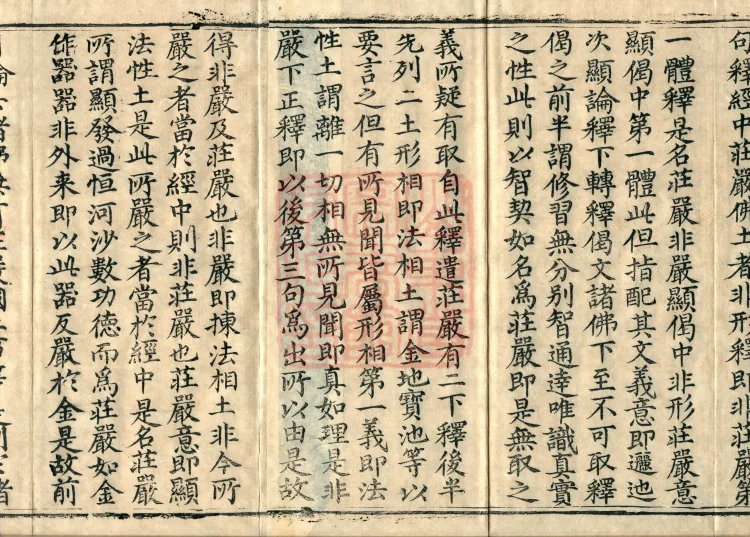 句釋經中莊嚴佛土者非形釋即非莊嚴第
一體釋是名莊嚴非嚴顯偈中非形莊嚴意
顯偈中第一體此但指配其文義意即邐迆
次顯論釋下轉釋偈文諸佛下至不可取釋
偈之前半謂修習無分別智通達唯識真實
之性此則以智契如名為莊嚴即是無取之
義所疑有取自此釋遣莊嚴有二下釋後半
先列二土形相即法相土謂金地寶池等以
要言之但有所見聞皆屬形相第一義即法
性土謂離一切相無所見聞即真如理是非
嚴下正釋即以後第三句為出所以由是故
得非嚴及莊嚴也非嚴即揀法相土非今所
嚴之者當於經中則非莊嚴也莊嚴意即顯
法性土是此所嚴之者當於經中是名莊嚴
所謂顯發過恒河沙數功德而為莊嚴如金
作器器非外来即以此器反嚴於金是故前